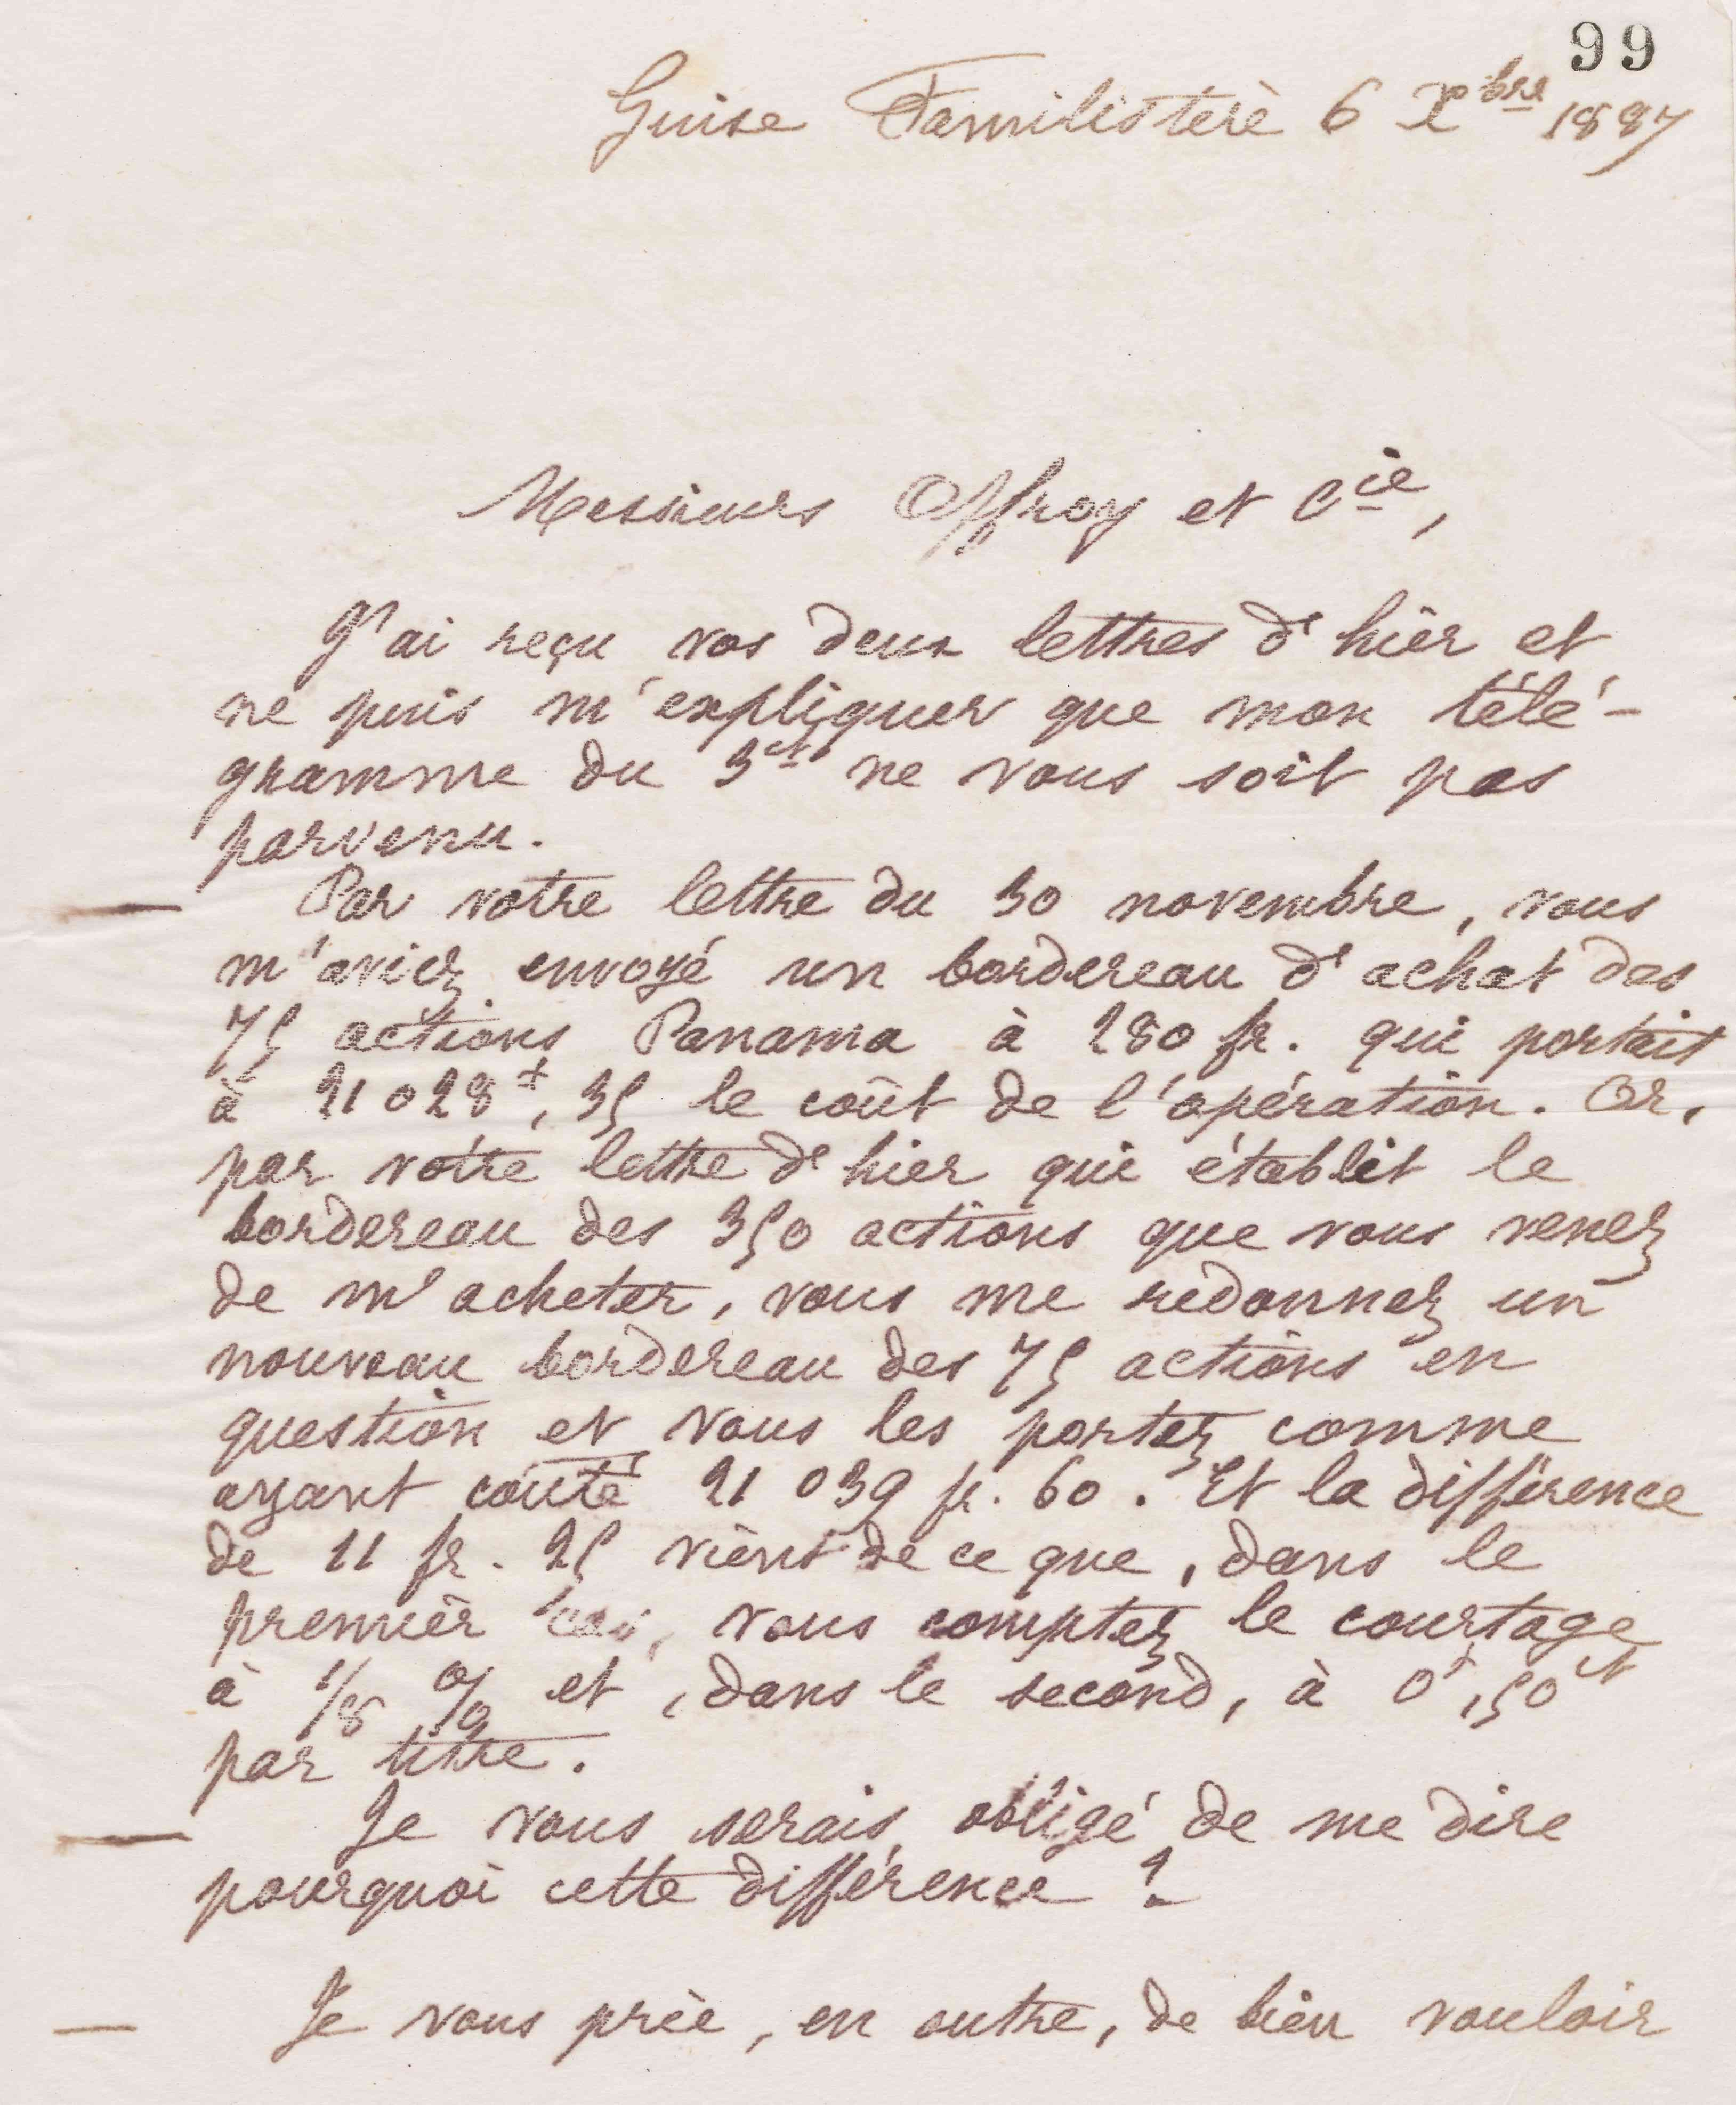 99
Guise Familistère 6 Xbre 1887
Messieurs Offroy et Cie,
J'ai reçu vos deux lettres d'hier et
ne puis m'expliquer que mon télé-
gramme du 3 ct ne vous soit pas
parvenu.
Par votre lettre du 30 novembre, vous
m'aviez envoyé un bordereau d'achat des
75 actions Panama à 280 fr. qui portait
à 21 028 f, 35 le coût de l'opération. Or,
par votre lettre d'hier qui établit le
bordereau des 350 actions que vous venez
de m'acheter, vous me redonnez un
nouveau bordereau des 75 actions en
question et vous les portez comme
ayant coûté 21 039 fr. 60. Et la différence
de 11 fr. 25 vient de ce que, dans le
premier cas, vous comptez le courtage
à 1/8 % et, dans le second, à 0f,50 ct
par titre.
Je vous serais obligé de me dire
pourquoi cette différence ?
Je vous prie, en outre, de bien vouloir